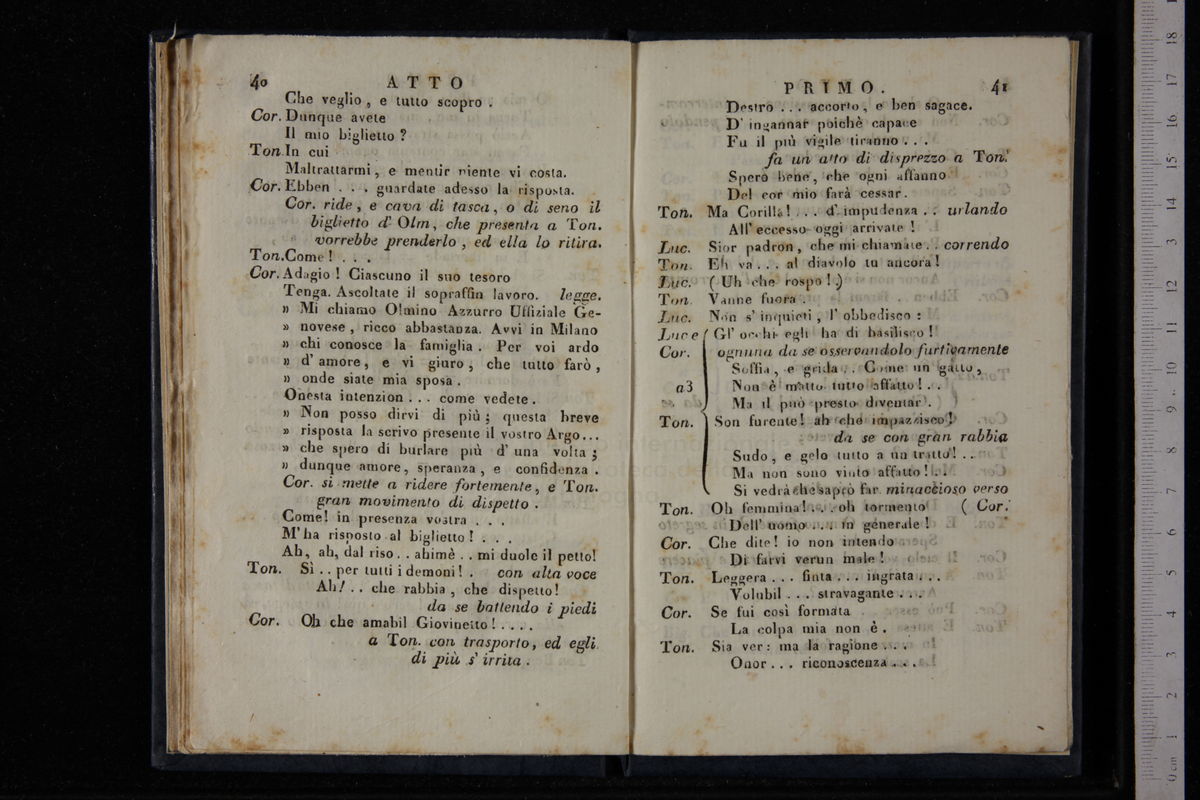 40 ATTO
Che veglio, e tutto scopro.
Cor. Dunque avete
Il mio biglietto?
Ton. In cui
Maltrattarmi, e mentir niente vi costa.
Cor. Ebben . . . guardate adesso la risposta.
Cor. ride, e cava di tasca, o di seno il
biglietto d' Olm, che presenta a Ton.
vorrebbe prenderlo, ed ella lo ritira.
Ton. Come! . . .
Cor. Adagio! Ciascuno il suo tesoro
Tenga. Ascoltate il sopraffin lavoro. legge.
» Mi chiamo Olmino Azzurro Uffiziale Ge-
» novese, ricco abbastanza. Avvi in Milano
» chi conosce la famiglia. Per voi ardo
» d' amore, e vi giuro, che tutto farò,
» onde siate mia sposa.
Onesta intenzion . . . come vedete.
» Non posso dirvi di più; questa breve
» risposta la scrivo presente il vostro Argo...
» che spero di burlare più d' una volta;
» dunque amore, speranza, e confidenza.
Cor. si mette a ridere fortemente, e Ton.
gran movimento di dispetto.
Come! in presenza vostra . . .
M' ha risposto al biglietto! . . .
Ah, ah, dal riso . . ahimè . . mi duole il petto!
Ton. Sì . . per tutti i demoni! . con alta voce
Ah! . . che rabbia, che dispetto!
da se battendo i piedi
Cor. Oh che amabil Giovinetto! . . . .
a Ton. con trasporto, ed egli
di più s' irrita.
PRIMO. 41
Destro . . . accorto, e ben sagace.
D' ingannar poichè capace
Fu il più vigile tiranno . . .
fa un atto di disprezzo a Ton.
Spero bene, che ogni affanno
Del cor mio farà cessar.
Ton. Ma Corilla! . . . d' impudenza . . urlando
All' eccesso oggi arrivate!
Luc. Sior padron, che mi chiamate . . correndo
Ton. Eh va . . . al diavolo tu ancora!
Luc. (Uh che rospo!)
Ton. Vanne fuora.
Luc. Non s' inquieti, l' obbedisco:
Luc e ( Gl' occhi egli ha di basilisco!
Cor. ognuna da se osservandolo furtivamente
Soffia, e grida . . Come un gatto,
a3 Non è matto tutto affatto! . .
Ma il può presto diventar.
Ton. Son furente! ah che impazzisco!
da se con gran rabbia
Sudo, e gelo tutto a un tratto! . .
Ma non sono vinto affatto! . .
Si vedrà che saprò far minaccioso verso
Ton. Oh femmina! . . . oh tormento ( Cor.
Dell' uomo . . . in generale!
Cor. Che dite! io non intendo
Di farvi verun male!
Ton. Leggera . . . finta . . . ingrata . . .
Volubil . . . stravagante . . .
Cor. Se fui così formata
La colpa mia non è.
Ton. Sia ver: ma la ragione . . .
Onor . . . riconoscenza . . .